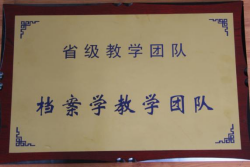 省级教学团队
档案学教学团队